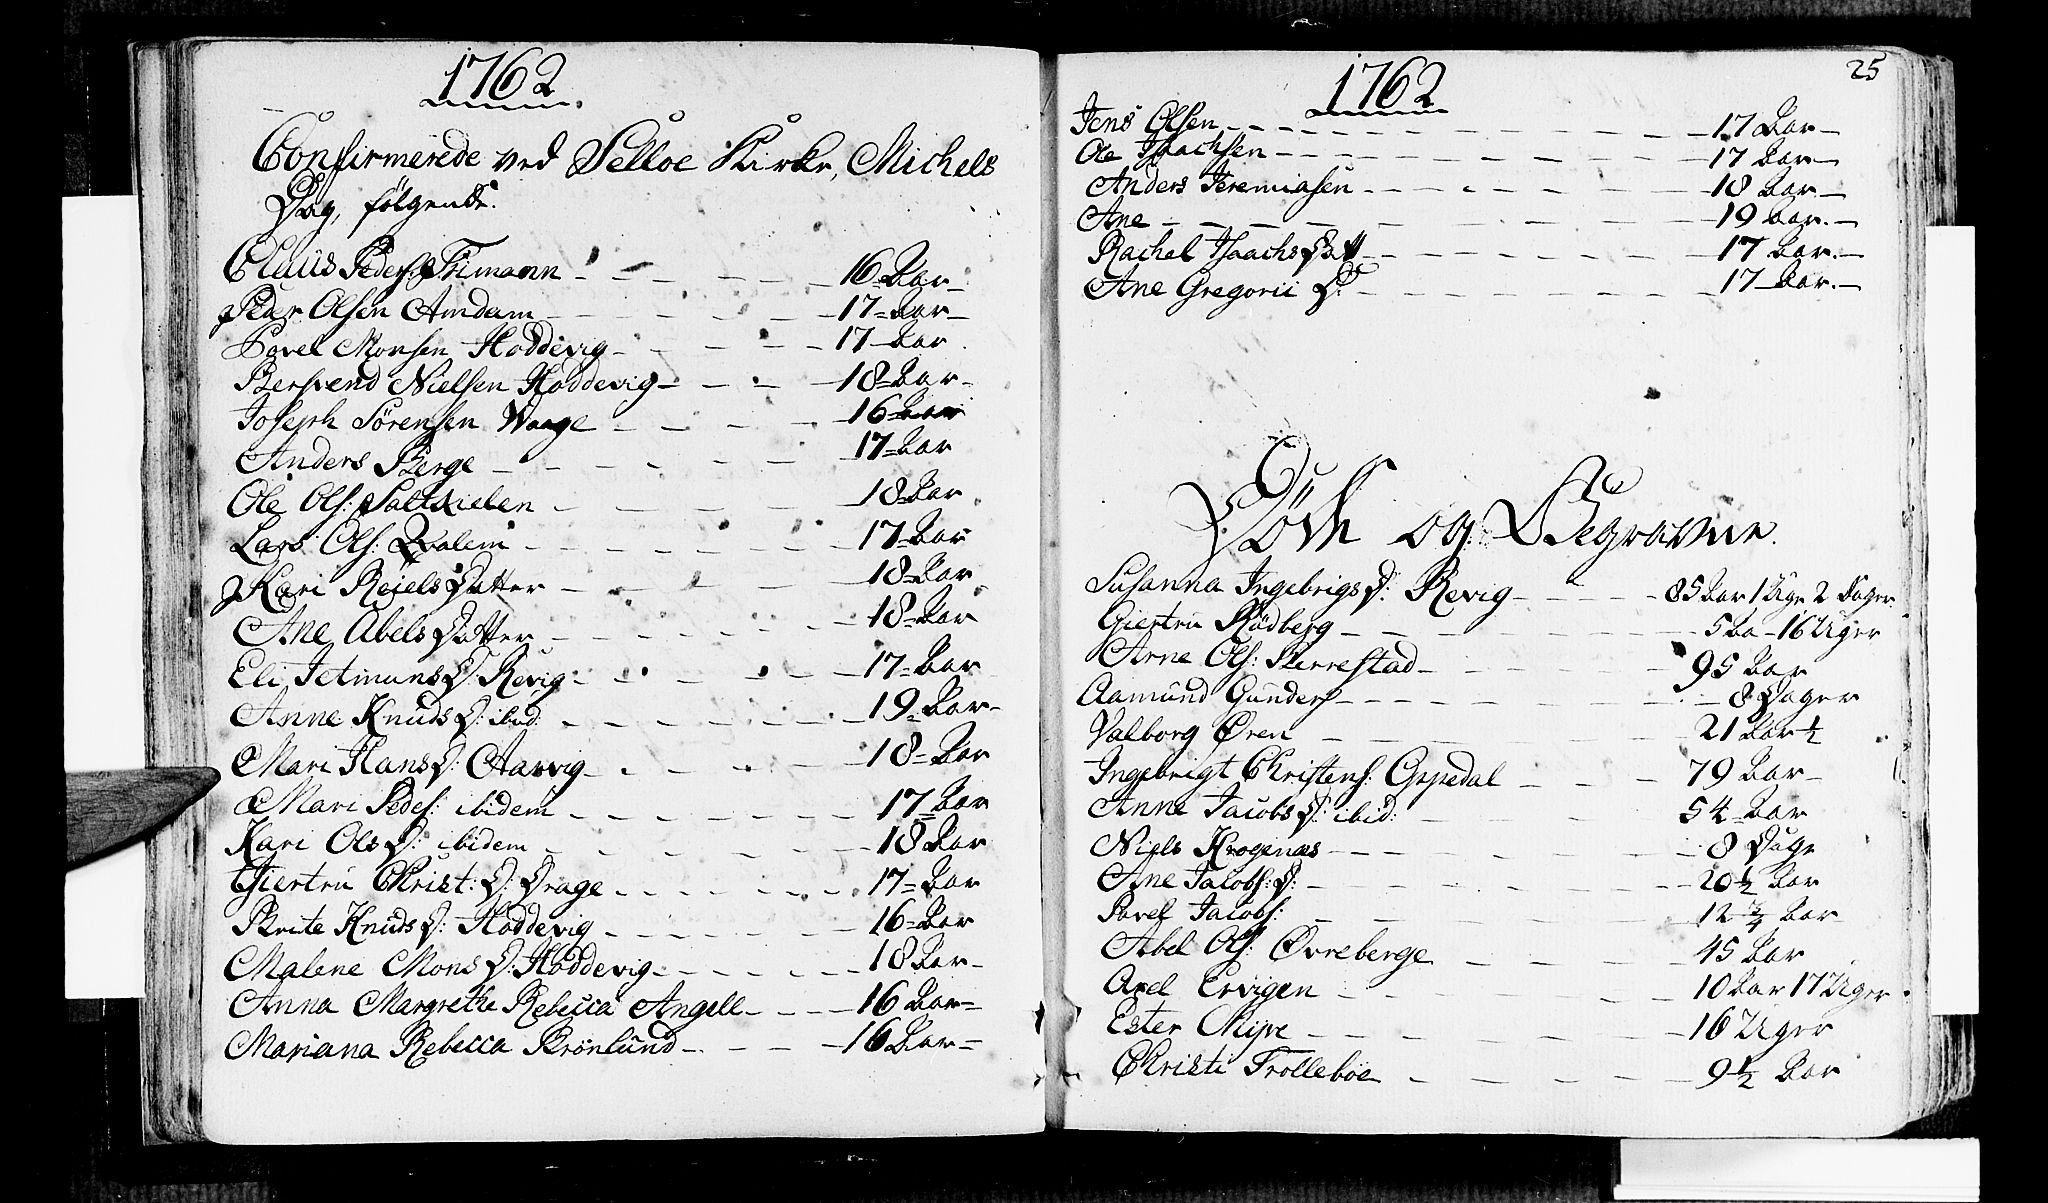 1762
Confirmerede ved Selloe Kirke, Michels
Dag, følgende.
Claus Peders Frimann 16 Aar
Peder Olsen Amdam 17 Aar
Povel Monsen Hoddevig 17 Aar
Bersvend Nielsen Hoddevig 18 Aar
Joseph Sörensen Waage 16 Aar
Anders Berge 17 Aar
Ole Ols: Saltkielen 18 Aar
Lars Ols: Qvalem 17 Aar
Kari Reiels Datter 18 Aar
Ane Abels Datter 18 Aar
Eli Jetmunds D: Revig 17 Aar
Anne Knuds D: ibid: 19 Aar
Mari Hans D: Aarvig 18 Aar
Mari Peders: ibidem 17 Aar
Kari Ols D: ibidem 18 Aar
Giertru Christ: D: Drage 17 Aar
Brite Knuds D: Hoddevig 16 Aar
Malene Mons D: Hoddevig 18 Aar
Anna Margrethe Rebecca Angell 16 Aar
Mariana Rebecca Brønlund 16 Aar
1762
25
Jens Olsen 17 Aar
Ole Isachsen 17 Aar
Anders Jeremiasen 18 Aar
Ane 19 Aar
Rachel Isaachs Datt 17 Aar
Ane Gregorii D: 17 Aar
Döde og Begravne.
Susanna Ingebrigs D: Revig 85 Aar 1 Uge 2 Dager
Giertru Rödberg 5 Aar 16 Uger
Arne Ols: Berrestad 95 Aar
Aamund Gunders 8 Dager
Valborg Øren 21 Aar ½
Ingebrigt Christens: Oppedal 79 Aar
Anne Jacobs D: ibid: 54 Aar
Niels Krogenæs 8 Dage
Ane Jacobs: D: 20 ½ Aar
Povel Jacobs: 12 ¾ Aar
Abel Ols: Øvreberge 45 Aar
Axel Ervigen 10 Aar 17 Uger
Ester Myre 16 Uger
Christi Trolleböe 9 ½ Aar